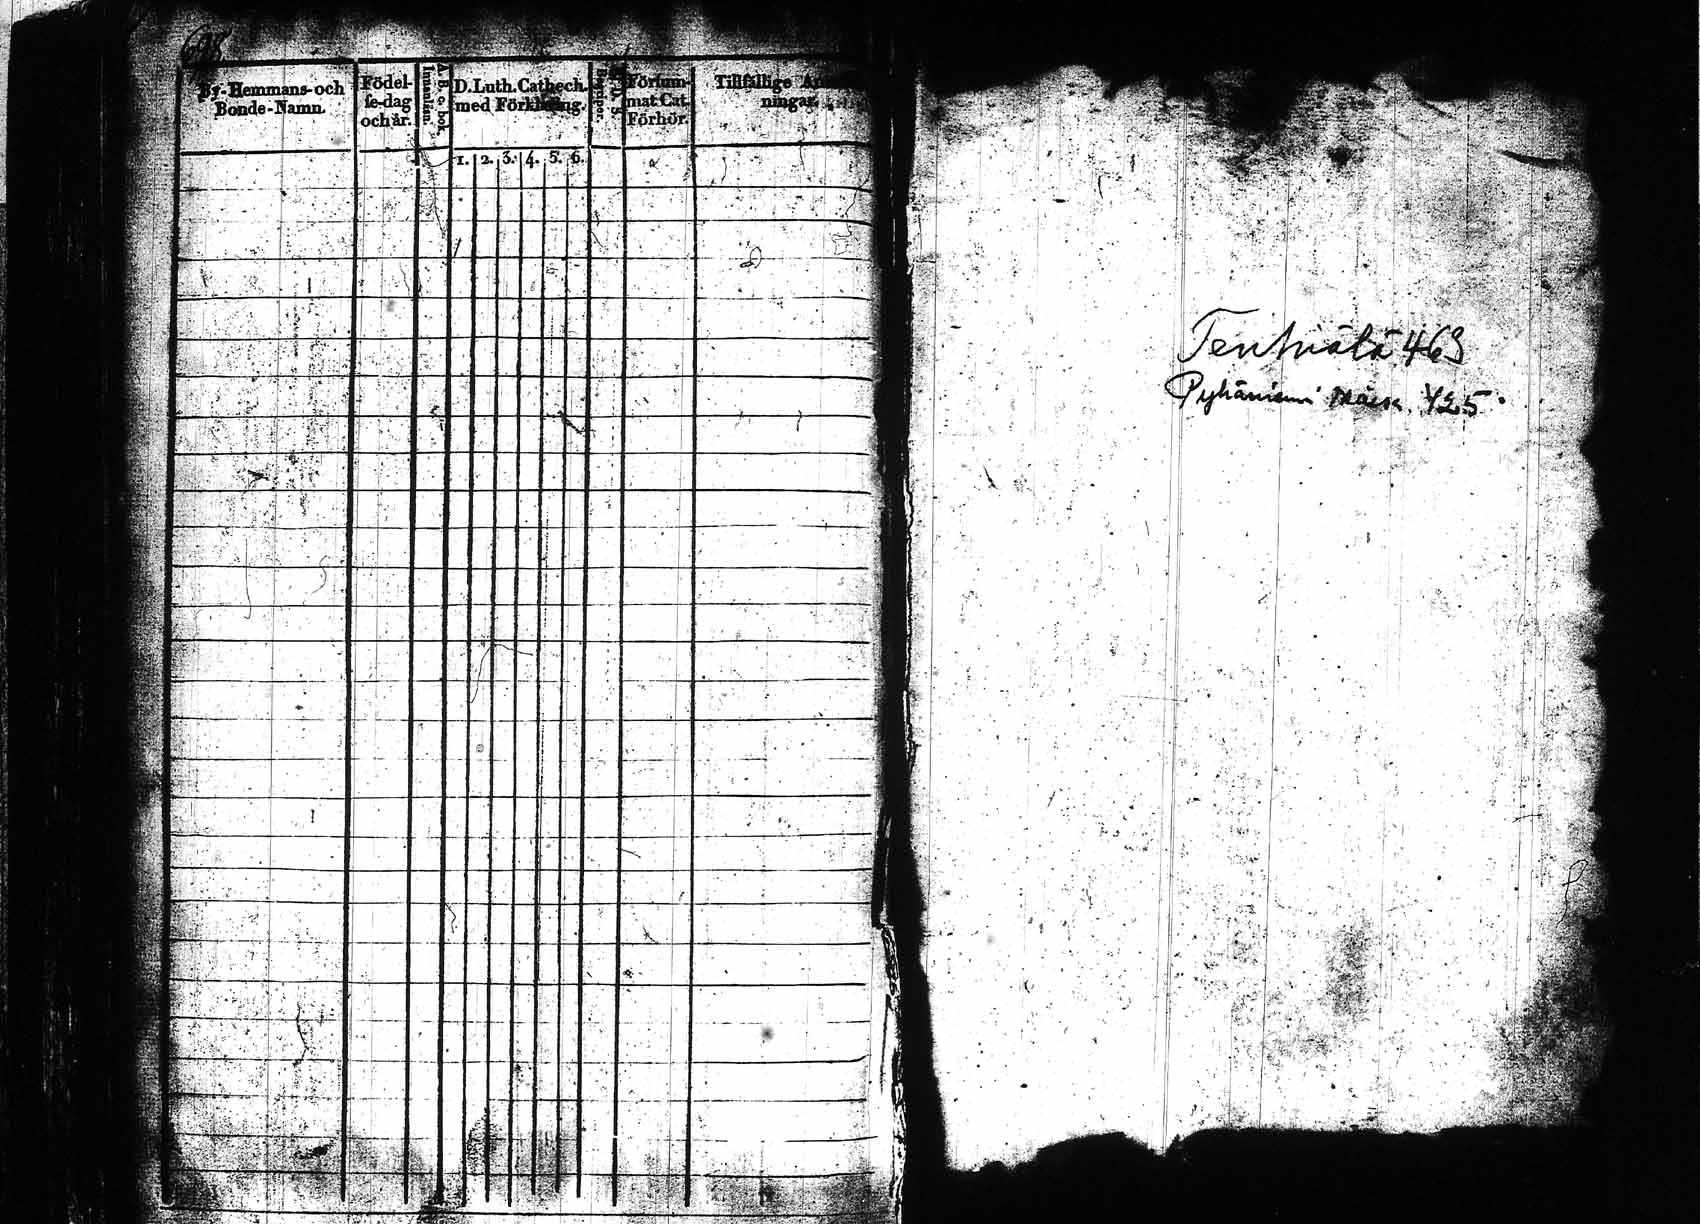 By- Hemmans- och
Bonde-Namn.
Födel-
se-dag
och år.
A. B. c. bok
Innanläsn.
D. Luth. Cathech.
med Förklaring.
Begrepet.
Försum-
mat Cat.
Förhör.
Tillfällige
ningar.
1. 2. 3. 4. 5. 6.
463
Pyhäniemi 425